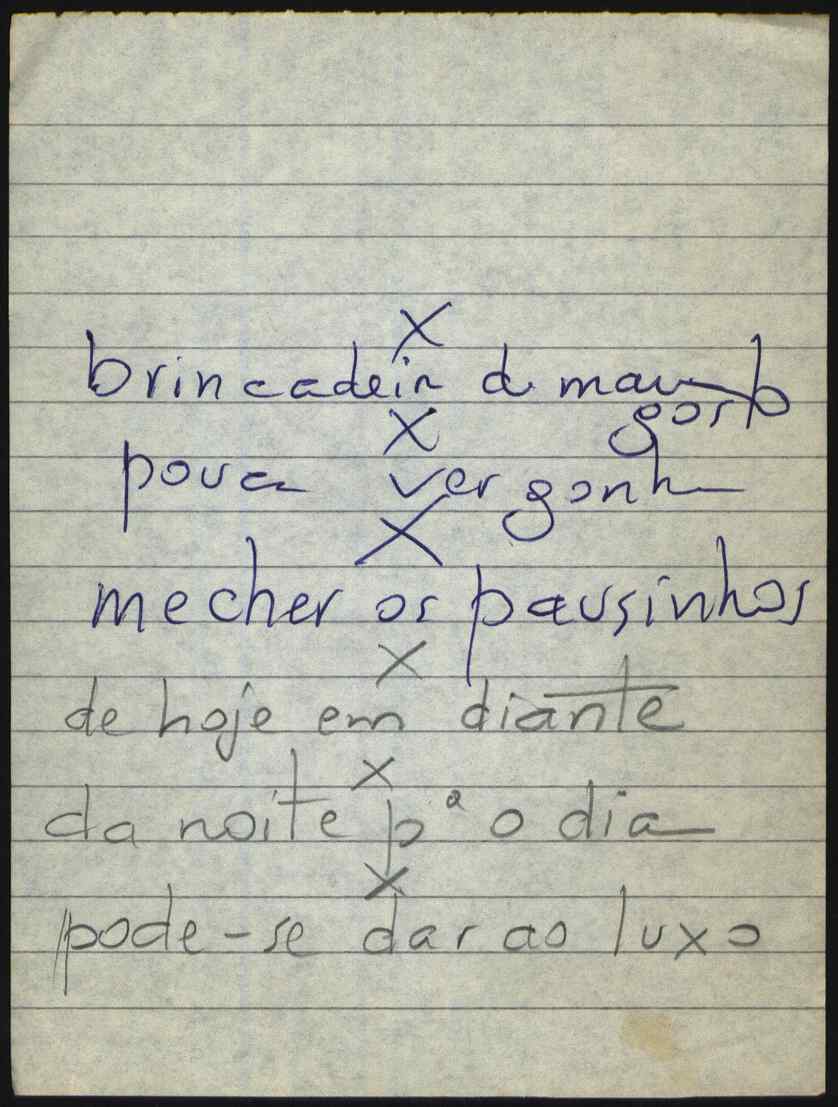 X
brincadeira de mau
gosto
X
pouca vergonha
X
mecher os pausinhos
X
de hoje em diante
X
da noite pª o dia
X
pode-se dar ao luxo